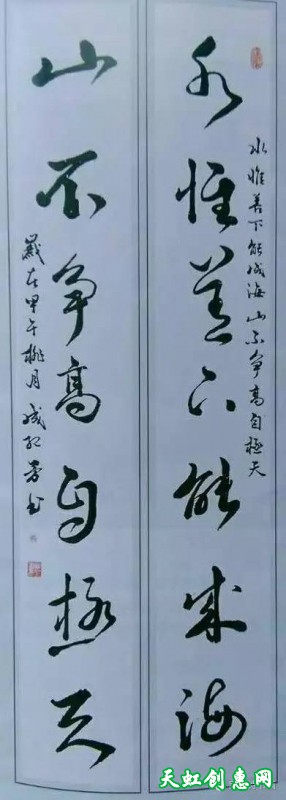 水惟善下能成海
水惟善下能成海山不争高自极天
山不争高自極天
歲在甲午桃月成紅芳书
天虹创惠网